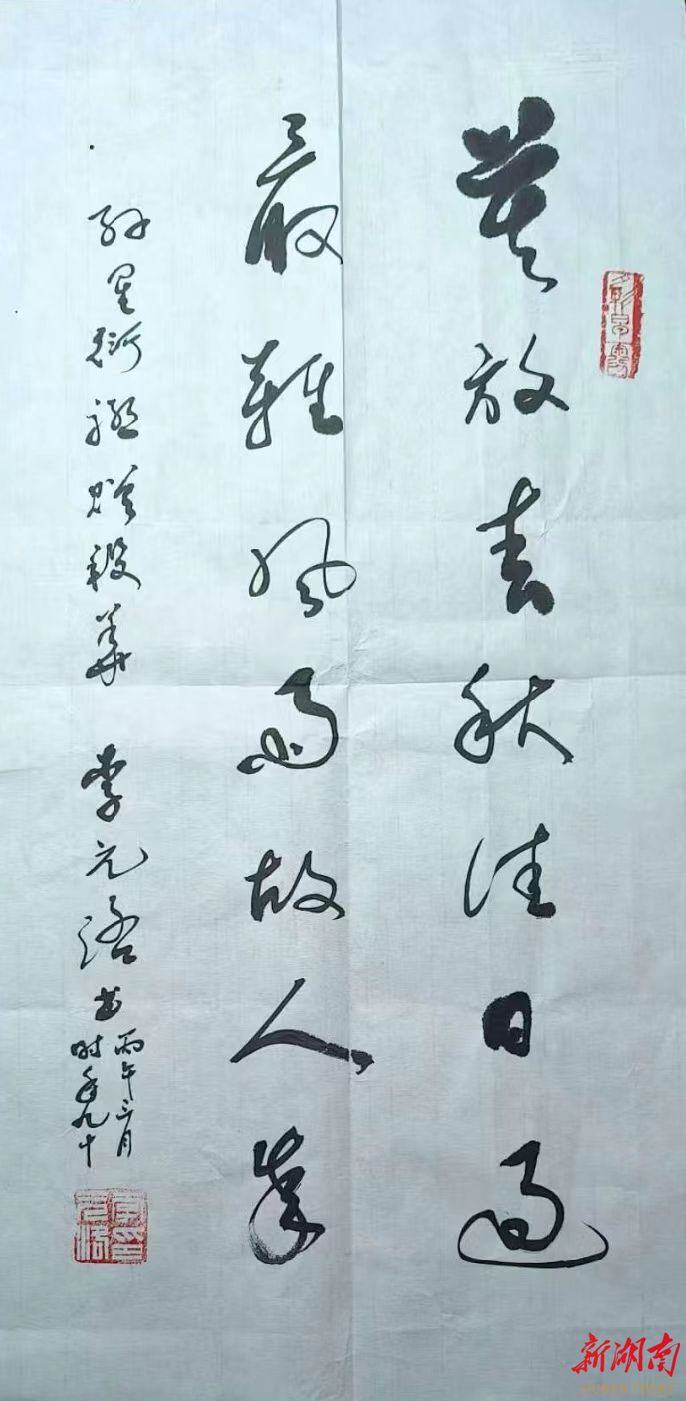 莫放春秋佳日過
最難風雨故人來
孫星衍聯贈段華 李元洛書
丙午三月
时年九十
新湖南
HUNAN TODAY